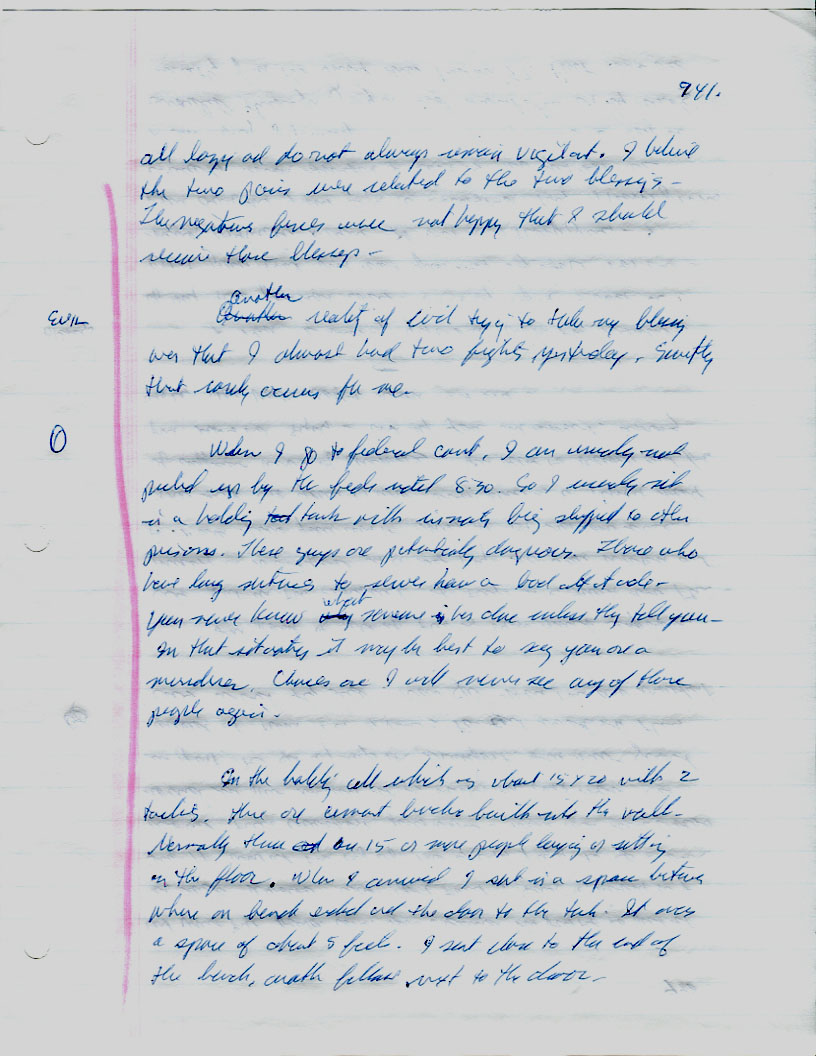 941.
all lazy and do not always remain vigilant. I believe
the two were related to the two blessings -
The negative forces were not happy that I should
receive those blessings -
another
Another reality of Evil trying to take my blessing
EVIL
was that I almost had two fights yesterday.
that rarely occurs for me.
O
When I go to federal court, I am usually not
picked up by the feds until 8:30. So I usually sit
in a holding tank with inmates being shipped to other
prisons. These guys are potentially dangerous. Those who
have long sentences to serve have a bad attitude -
what
You never know why someone has done unless they tell you -
In that situation it may be best to say you are a
murderer. Chances are I will never see any of those
people again.
In the holding cell which is about 15 x 20 with 2
toilets. There are cement benches built into the wall.
Normally there are 15 or more people laying or sitting
on the floor. When I arrived I sat in a space between
where one bench ended and the door to the tank. It was
a space of about 5 feet. I sat close to the end of
the bench, another fellow next to the door -